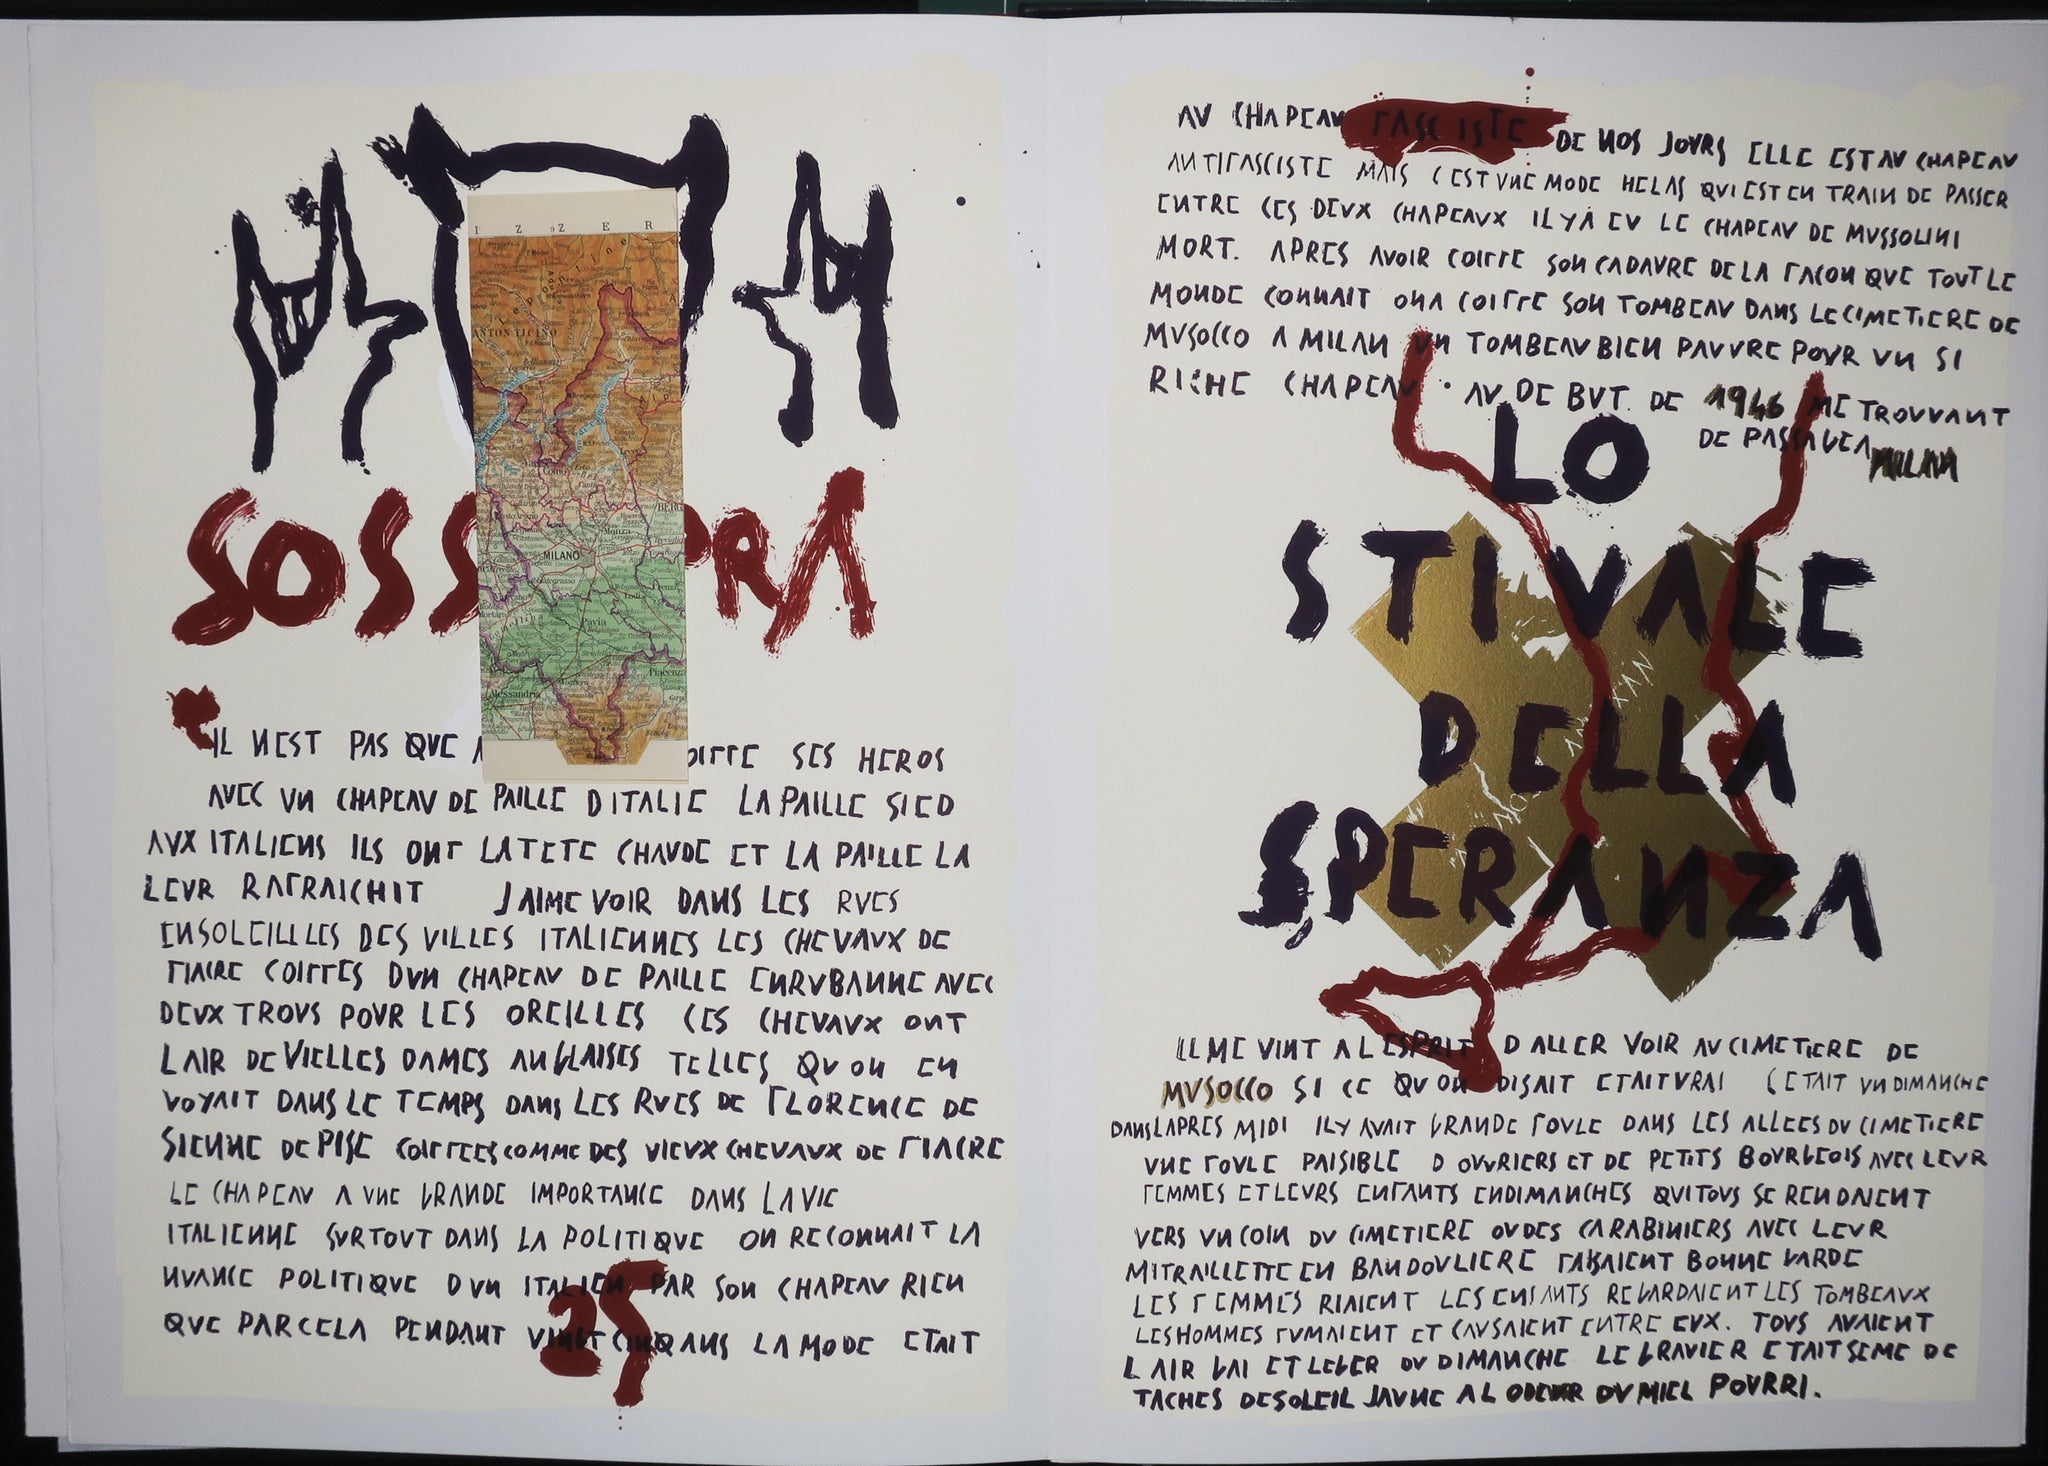 SVIZZER
CANTON TICINO
Como
BERG
Monza
MILANO
Lodi
Pavia
Piacenza
Alessandria
SOSS PRA
IL NEST PAS QUE COIFFE SES HEROS
AVEC UN CHAPEAU DE PAILLE DITALIE LA PAILLE SIED
AUX ITALIENS ILS ONT LA TETE CHAUDE ET LA PAILLE LA
LEUR RAFRAICHIT JAIME VOIR DANS LES RUES
ENSOLEILLLES DES VILLES ITALIENNES LES CHEVAUX DE
FIACRE COIFFES DUN CHAPEAU DE PAILLE ENRUBANNE AVEC
DEUX TROUS POUR LES OREILLES CES CHEVAUX ONT
LAIR DE VIELLES DAMES ANGLAISES TELLES QU ON EN
VOYAIT DANS LE TEMPS DANS LES RUES DE FLORENCE DE
SIENNE DE PISE COIFFEES COMME DES VIEUX CHEVAUX DE FIACRE
LE CHAPEAU A UNE GRANDE IMPORTANCE DANS LA VIE
ITALIENNE SURTOUT DANS LA POLITIQUE ON RECONNAIT LA
NUANCE POLITIQUE DUN ITALIEN PAR SON CHAPEAU RIEN
QUE PAR CELA PENDANT VINGT CINQ ANS LA MODE ETAIT
25
AU CHAPEAU FASCISTE DE NOS JOURS ELLE EST AU CHAPEAU
ANTIFASCISTE MAIS C EST UNE MODE HELAS QUI EST EN TRAIN DE PASSER
ENTRE CES DEUX CHAPEAUX IL Y A EU LE CHAPEAU DE MUSSOLINI
MORT. APRES AVOIR COIFFE SON CADAVRE DE LA FACON QUE TOUT LE
MONDE CONNAIT ON A COIFFE SON TOMBEAU DANS LE CIMETIERE DE
MUSOCCO A MILAN UN TOMBEAU BIEN PAUVRE POUR UN SI
RICHE CHAPEAU . AU DEBUT. DE 1946 ME TROUVANT
DE PASSAGE A MILAN
LO
STIVALE
DELLA
SPERANZA
IL ME VINT A L ESPRIT D ALLER VOIR AU CIMETIERE DE
MUSOCCO SI CE QU ON DISAIT ETAIT VRAI C ETAIT UN DIMANCHE
DANS L APRES MIDI IL Y AVAIT GRANDE FOULE DANS LES ALLEES DU CIMETIERE
UNE FOULE PAISIBLE D OUVRIERS ET DE PETITS BOURGEOIS AVEC LEUR
FEMMES ET LEURS ENFANTS ENDIMANCHES QUI TOUS SE RENDAIENT
VERS UN COIN DU CIMETIERE OU DES CARABINIERS AVEC LEUR
MITRAILLETTE EN BANDOULIERE FAISAIENT BONNE GARDE
LES FEMMES RIAIENT LES ENFANTS REGARDAIENT LES TOMBEAUX
LES HOMMES FUMAIENT ET CAUSAIENT ENTRE EUX. TOUS AVAIENT
L AIR GAI ET LEGER DU DIMANCHE LE GRAVIER ETAIT SEME DE
TACHES DE SOLEIL JAUNE A L ODEUR DU MIEL POURRI.